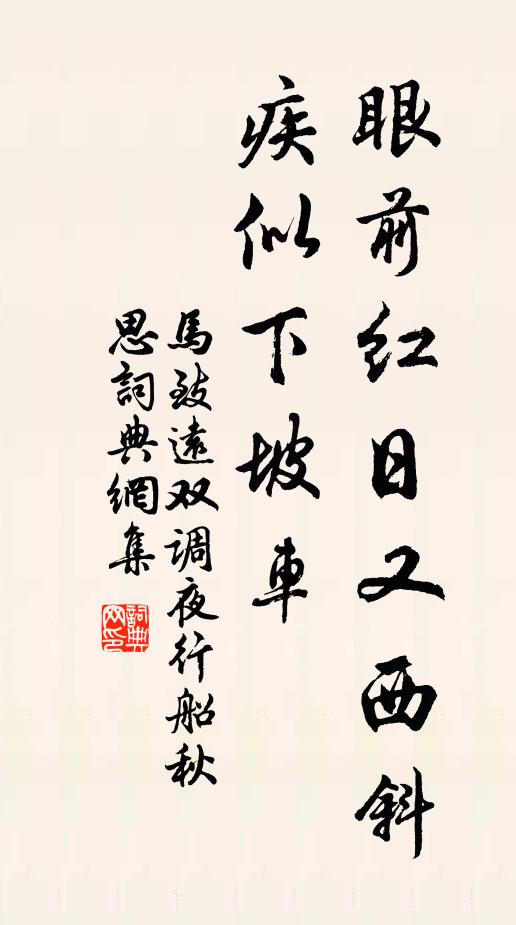 眼前红日又西斜
疾似下坡車
馬致遠双调夜行船秋
思詞典網集
詞典
网印